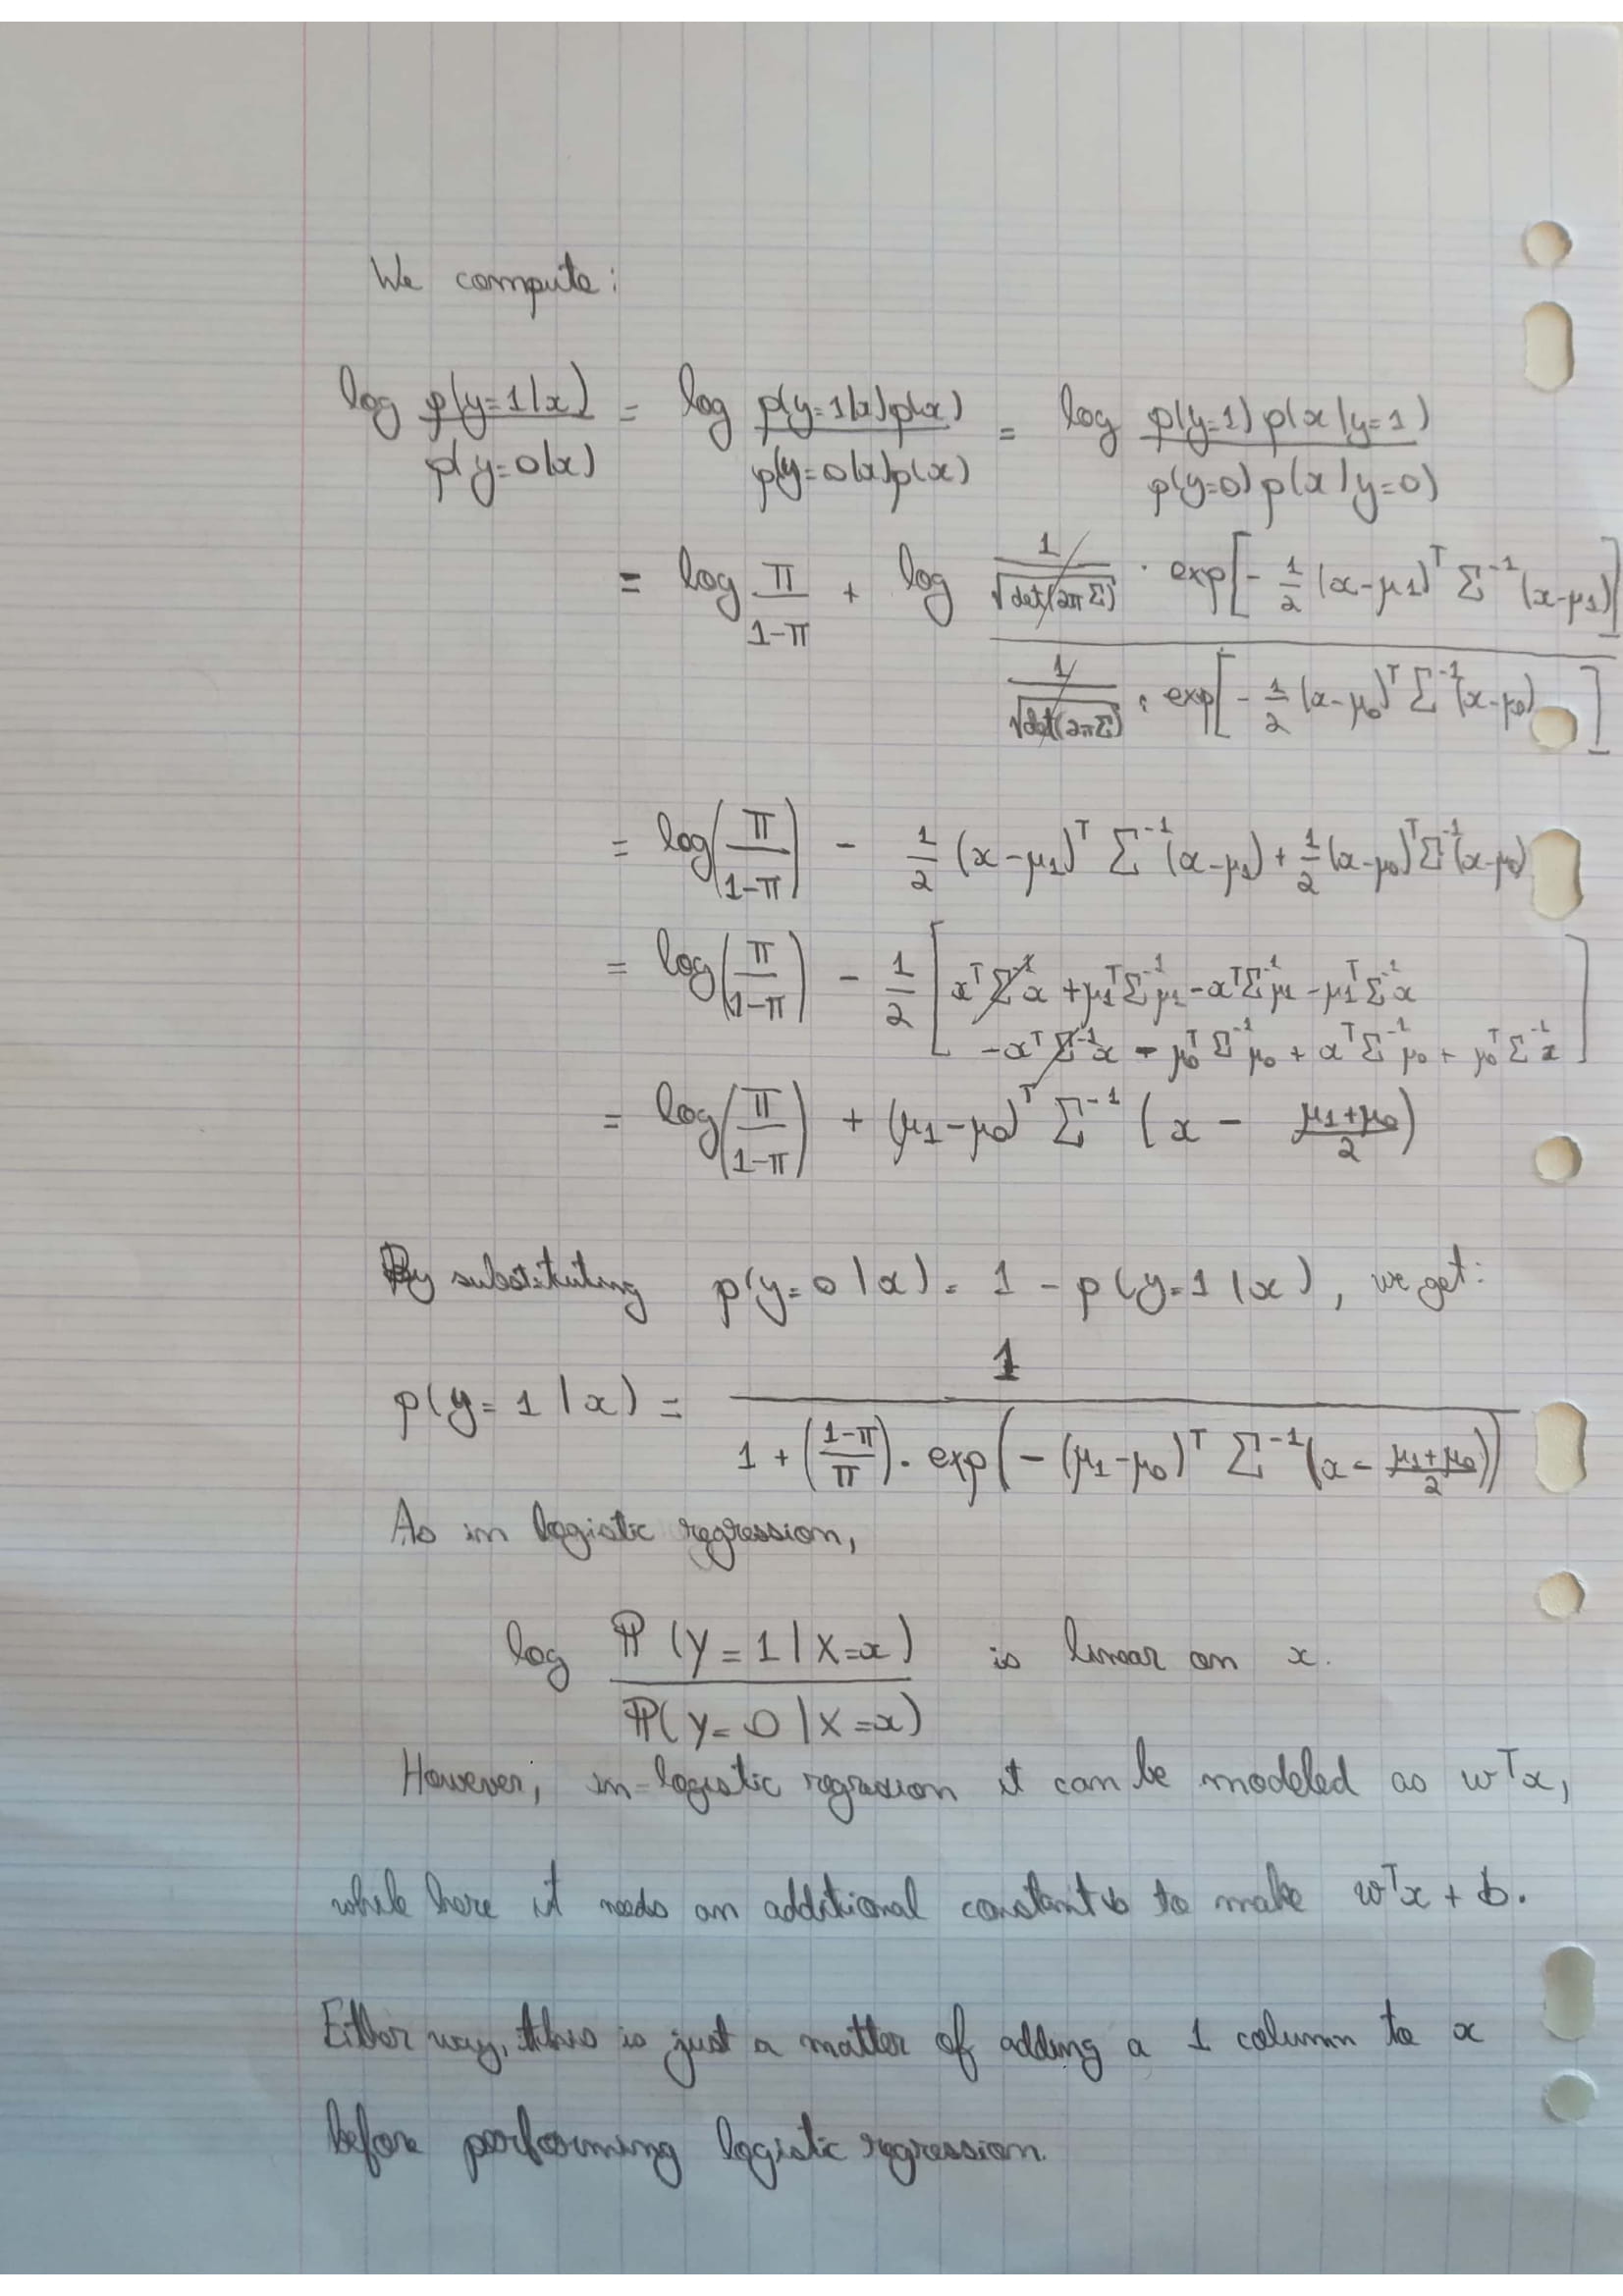 We compute:
log p(y=1|x) / p(y=0|x) = log p(y=1|x)p(x) / p(y=0|x)p(x) = log p(y=1) p(x|y=1) / p(y=0) p(x|y=0)
= log π/(1-π) + log (1/√det(2πΣ) · exp[-1/2 (x-μ1)ᵀ Σ⁻¹ (x-μ1)]) / (1/√det(2πΣ) · exp[-1/2 (x-μ0)ᵀ Σ⁻¹ (x-μ0)])
= log(π/(1-π)) - 1/2 (x-μ1)ᵀ Σ⁻¹ (x-μ1) + 1/2 (x-μ0)ᵀ Σ⁻¹ (x-μ0)
= log(π/(1-π)) - 1/2 [xᵀΣ⁻¹x + μ1ᵀΣ⁻¹μ1 - xᵀΣ⁻¹μ1 - μ1ᵀΣ⁻¹x
- xᵀΣ⁻¹x - μ0ᵀΣ⁻¹μ0 + xᵀΣ⁻¹μ0 + μ0ᵀΣ⁻¹x]
= log(π/(1-π)) + (μ1-μ0)ᵀ Σ⁻¹ (x - (μ1+μ0)/2)
By substituting p(y=0|x) = 1 - p(y=1|x), we get:
p(y=1|x) = 1 / (1 + ((1-π)/π) · exp(-(μ1-μ0)ᵀ Σ⁻¹ (x - (μ1+μ0)/2)))
As in logistic regression,
log ℙ(Y=1|X=x) / ℙ(Y=0|X=x) is linear on x.
However, in logistic regression it can be modeled as wᵀx,
while here it needs an additional constant b to make wᵀx + b.
Either way, this is just a matter of adding a 1 column to x
before performing logistic regression.